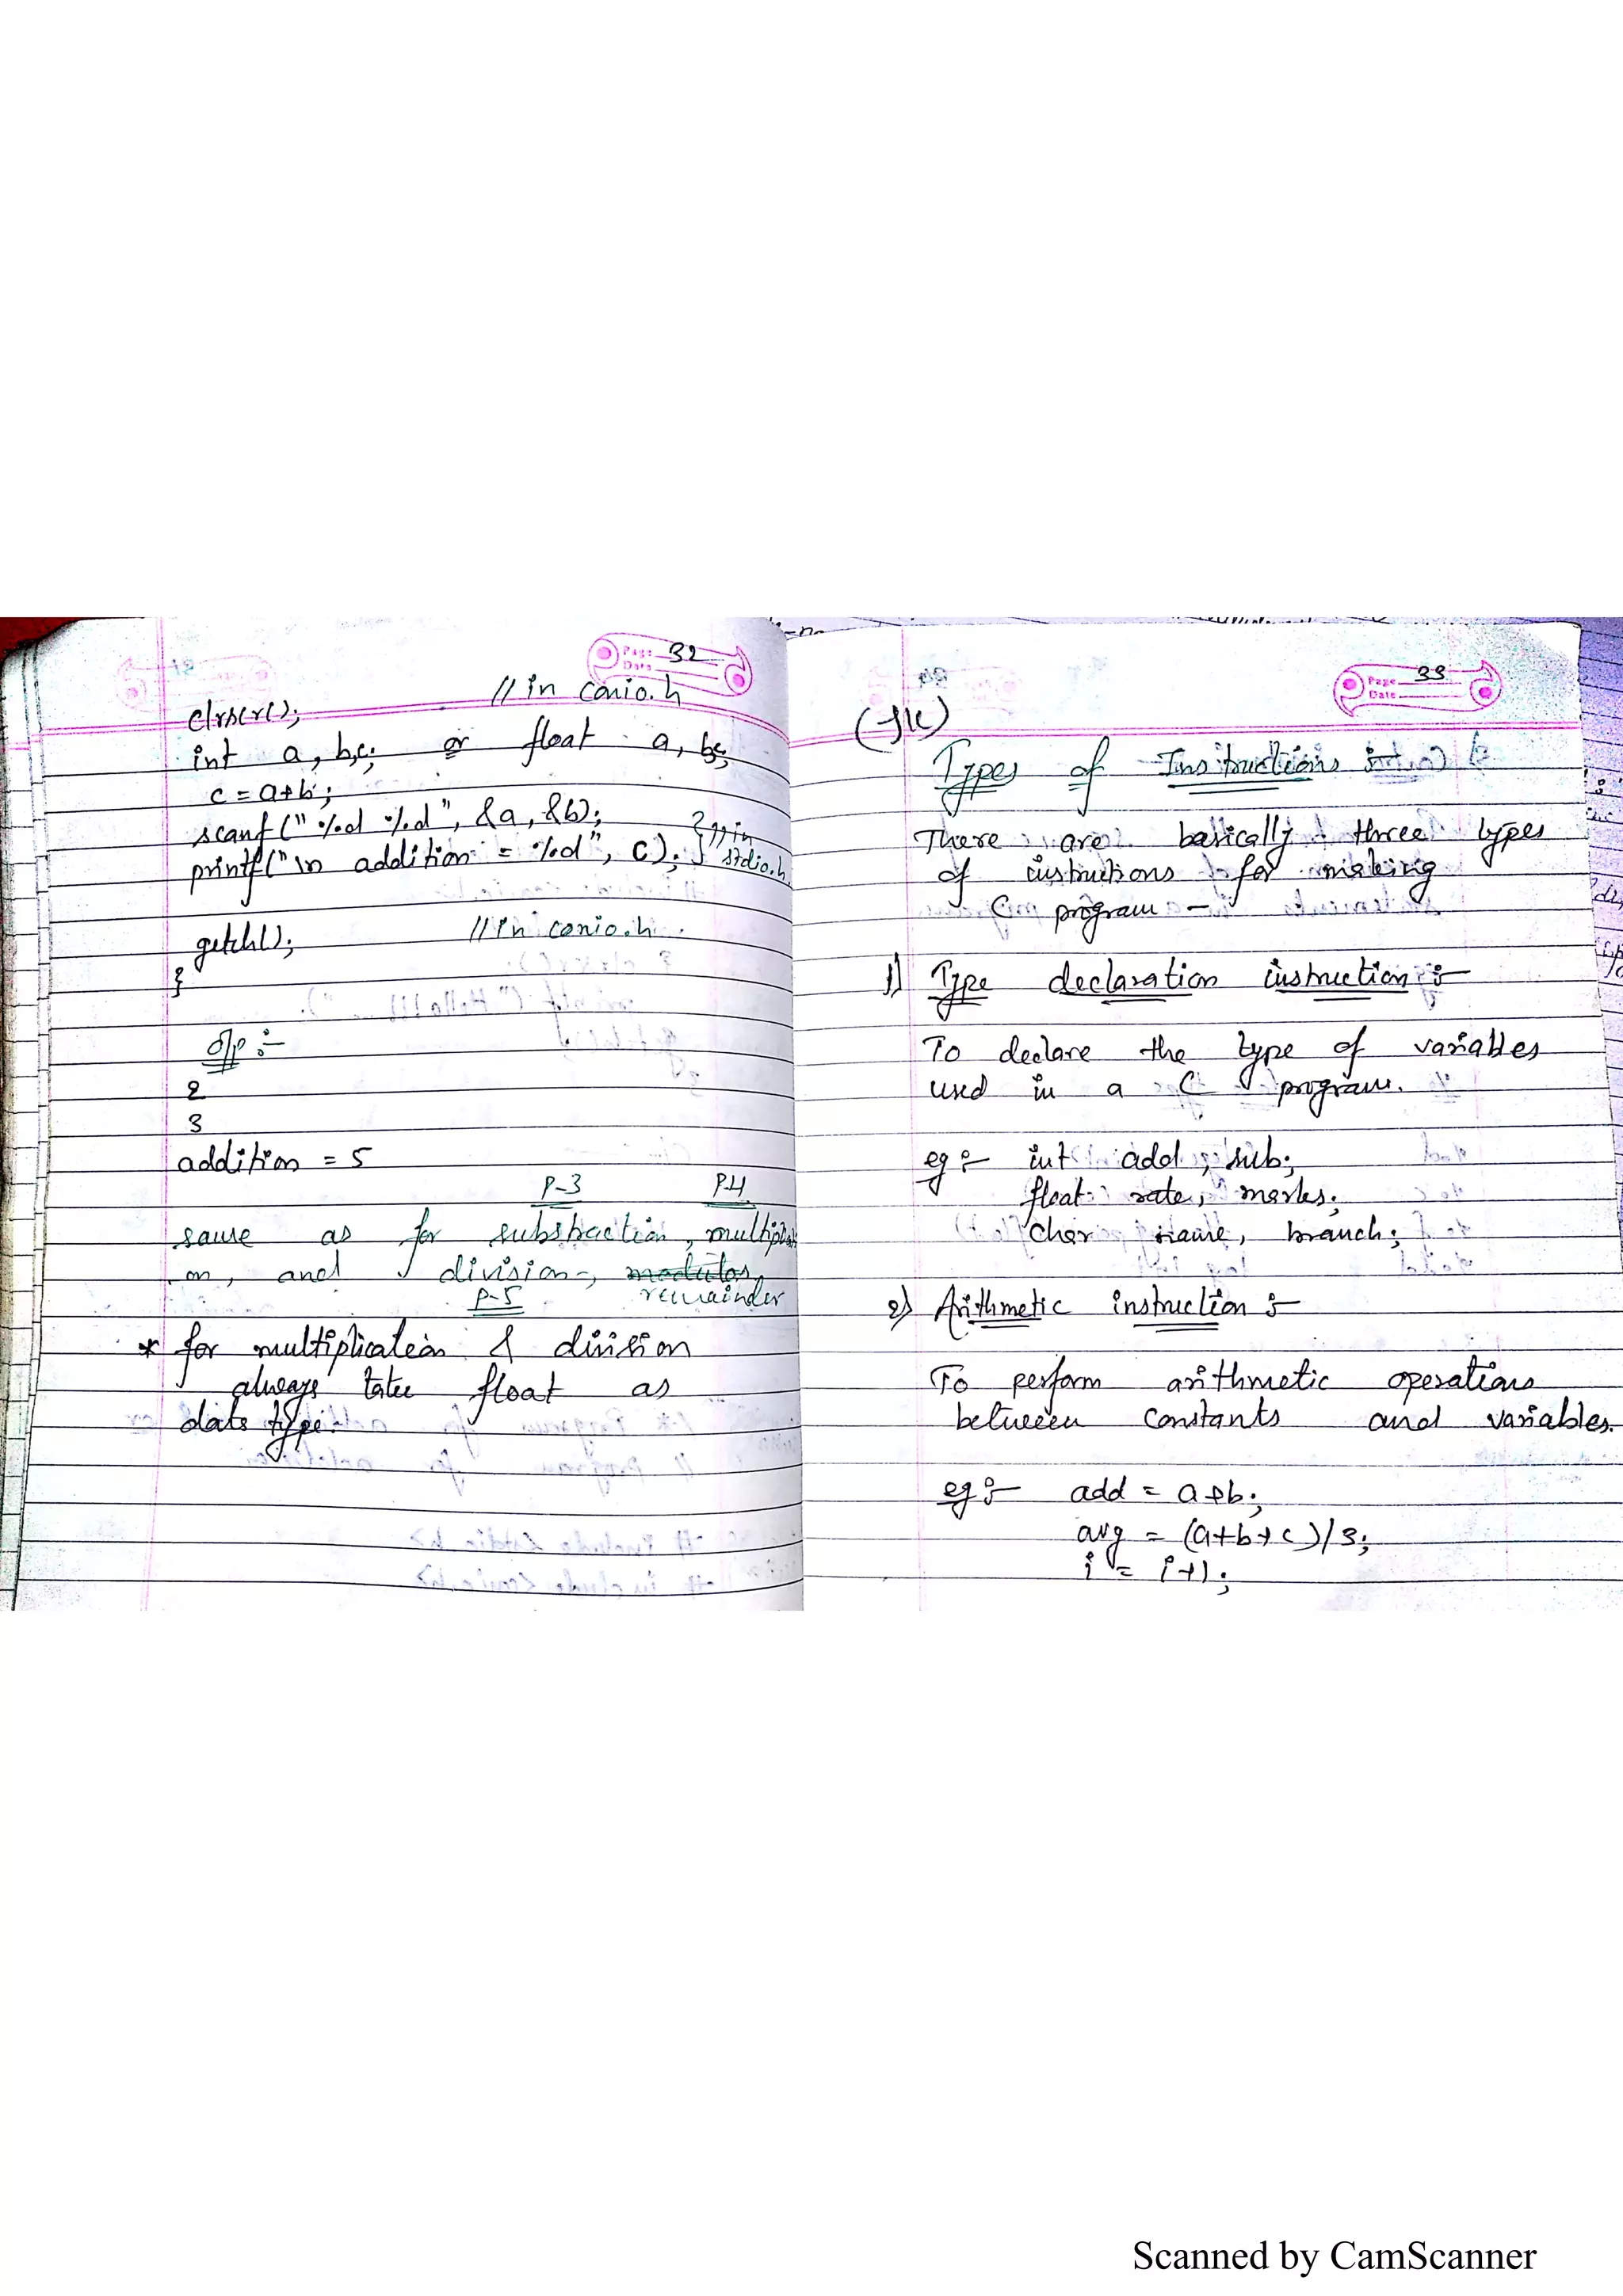 Page 32
Date
clrscr(); // in conio.h
int a, b,c; or float a, b,c;
c = a+b;
scanf ("%d %d", &a, &b);
printf ("\n addition = %d", c); } // in stdio.h
getch(); // in conio.h
}
O/p :-
2
3
addition = 5
P-3 P-4
same as for substraction, multiplicati
on, and division,
P-5 remainder
* for multiplication & division
always take float as
data type.
Page 33
Date
Types of Instructions
There are basically three types
of instructions for making
C program -
1) Type declaration instruction :-
To declare the type of variables
used in a C program.
eg :- int add, sub;
float rate, marks;
char name, branch;
2) Arithmetic instruction :-
To perform arithmetic operations
between constants and variables.
eg :- add = a+b;
avg = (a+b+c)/3;
i = i+1;
Scanned by CamScanner